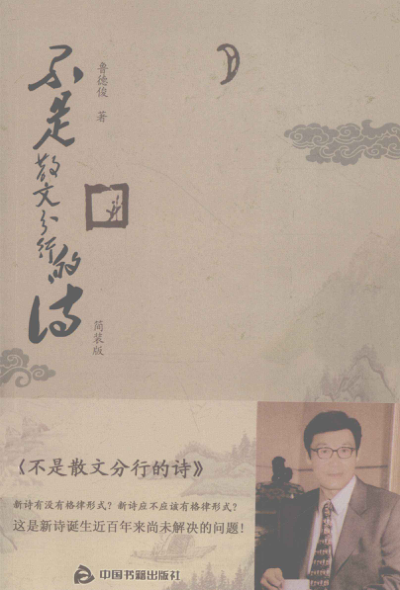 鲁德俊 著
不是散文分行的诗
简装版
《不是散文分行的诗》
新诗有没有格律形式？新诗应不应该有格律形式？
这是新诗诞生近百年来尚未解决的问题！
中国书籍出版社